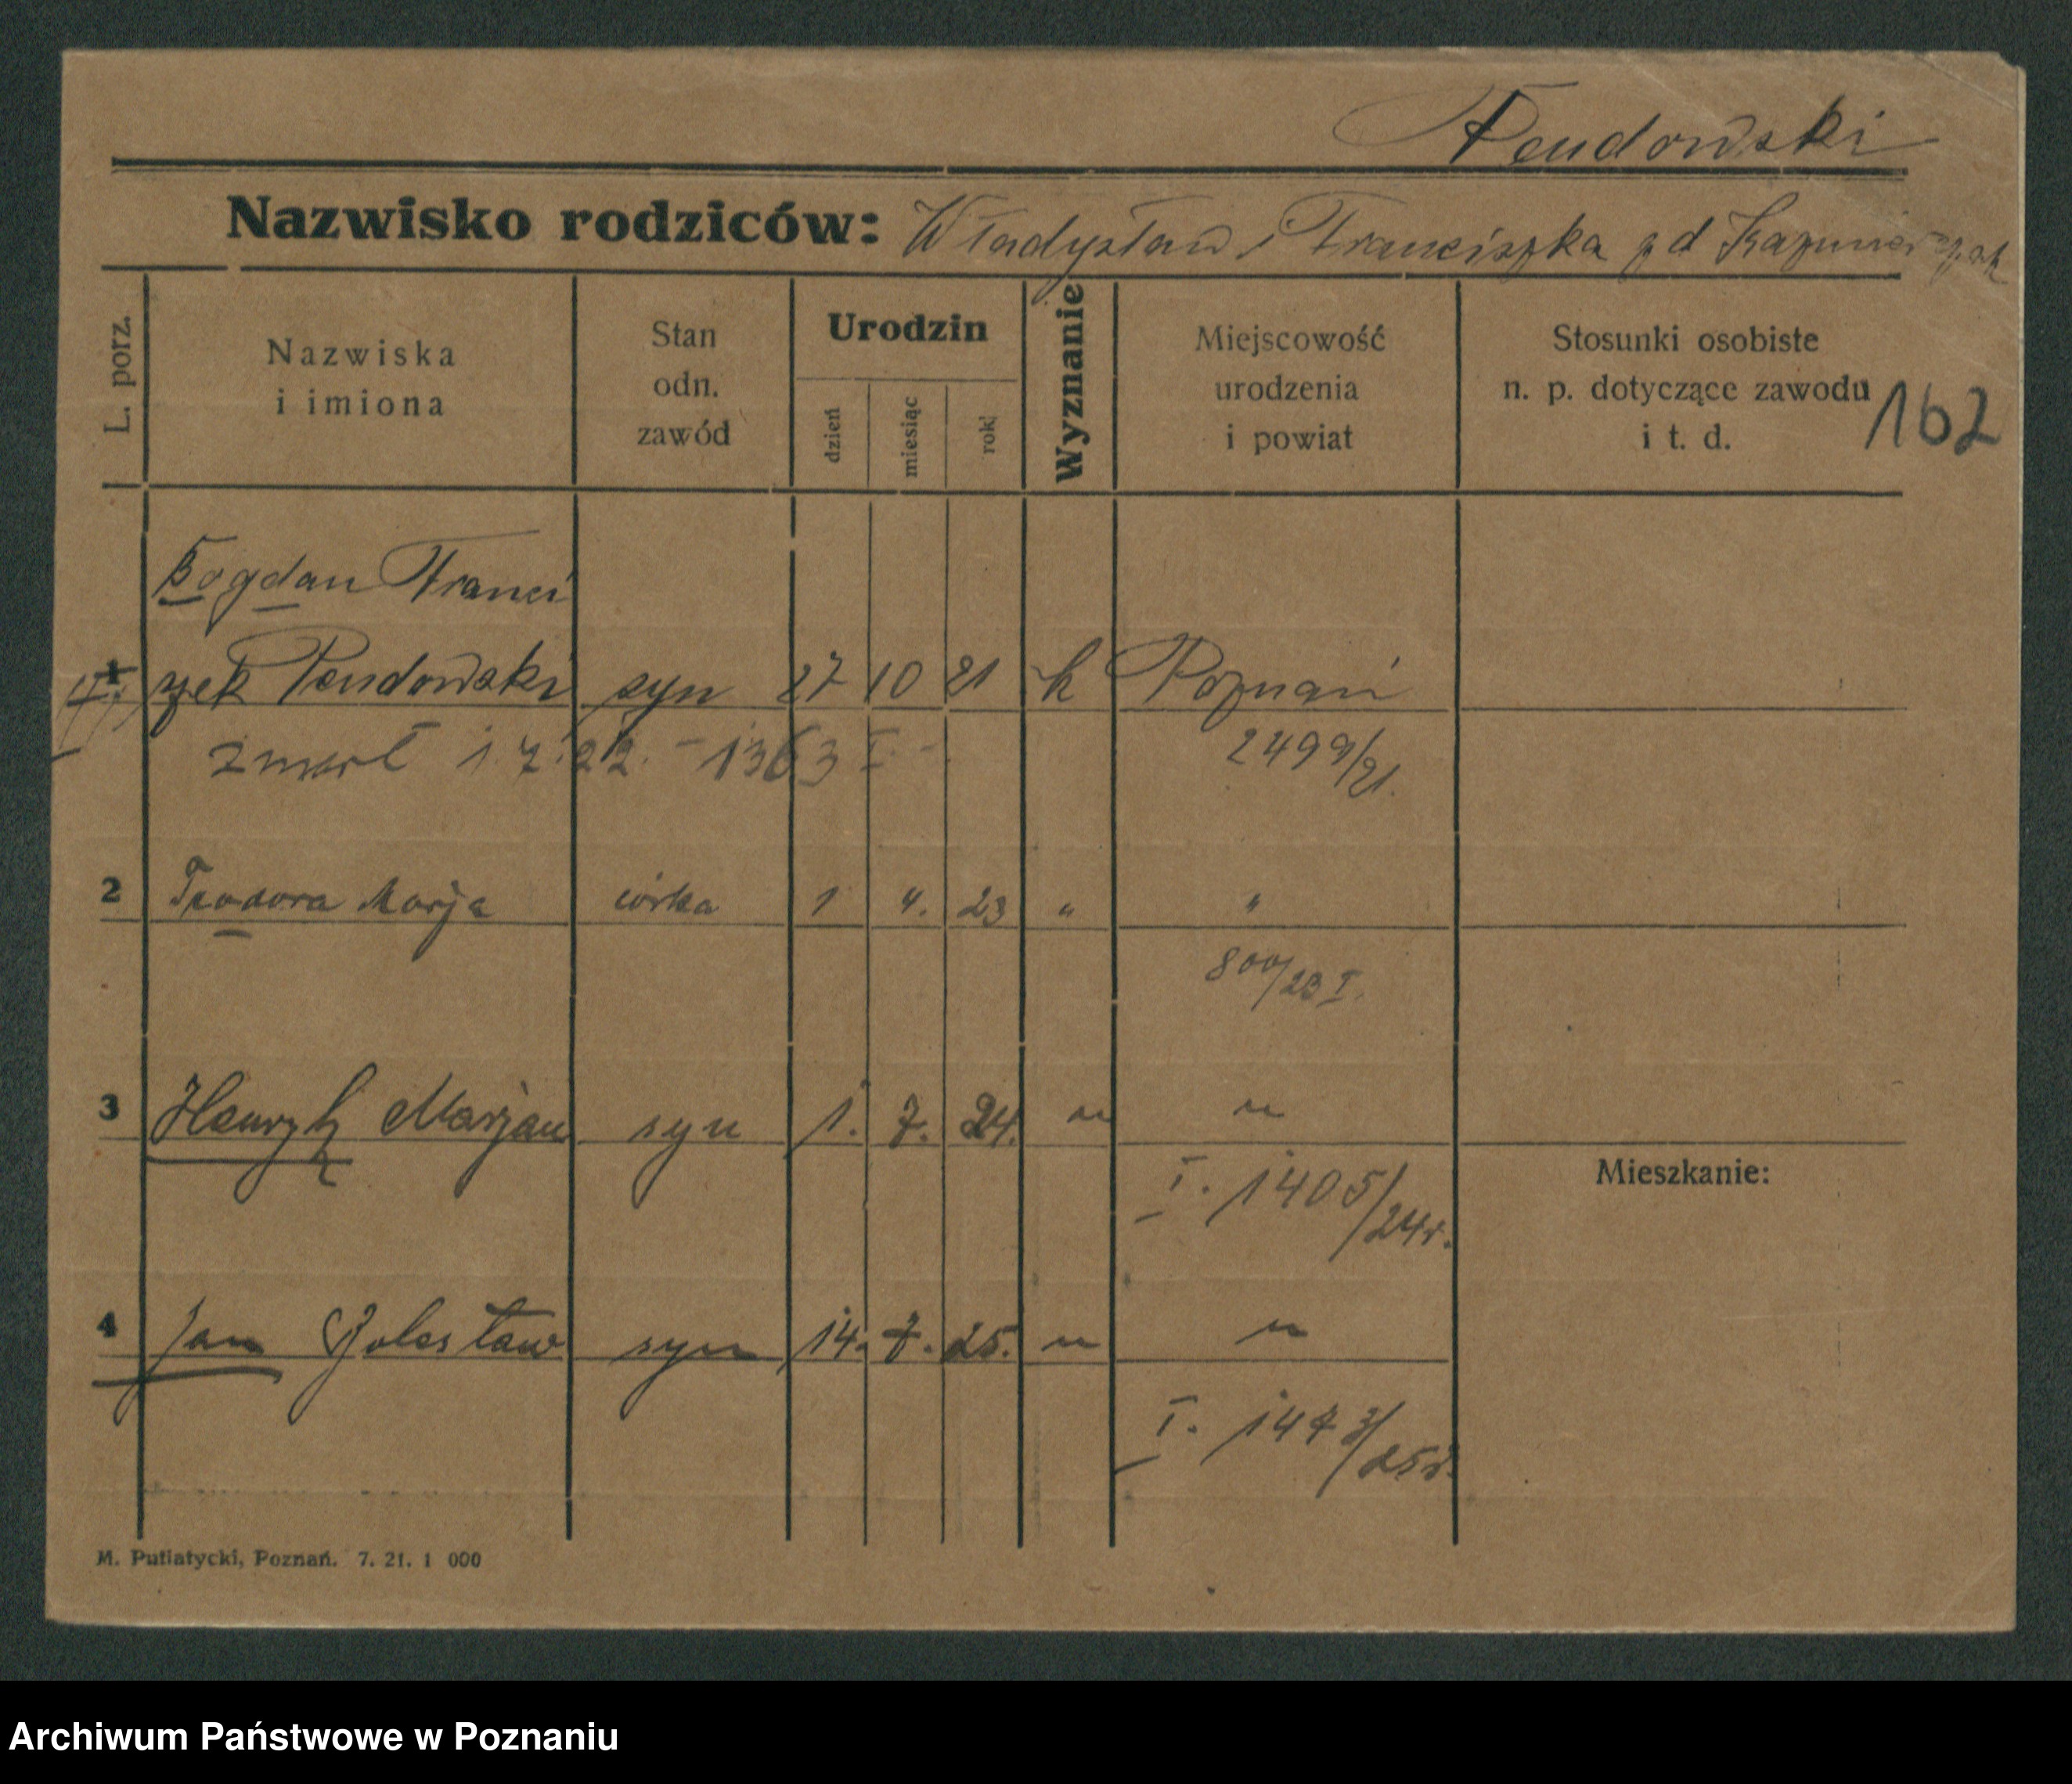 Pendowski
Nazwisko rodziców: Władysław i Franciszka zd Kazmierczak
L. porz.
Nazwiska
i imiona
Stan
odn.
zawód
Urodzin
dzień
miesiąc
rok
Wyznanie
Miejscowość
urodzenia
i powiat
Stosunki osobiste
n. p. dotyczące zawodu
i t. d.
162
Bogdan Franci
1 zek Pendowski syn 27 10 21 k Poznań
zmarł 1.7.22. - 1363 I. -
2499/21.
2 Teodora Marja córka 1 4. 23 " "
800/23 I.
3 Henryk Marjan syn 1. 7. 24. " "
I. 1405/24r.
Mieszkanie:
4 Jan Bolesław syn 14. 7. 25. " "
I. 1473/25r.
M. Putiatycki, Poznań. 7. 21. 1 000
Archiwum Państwowe w Poznaniu